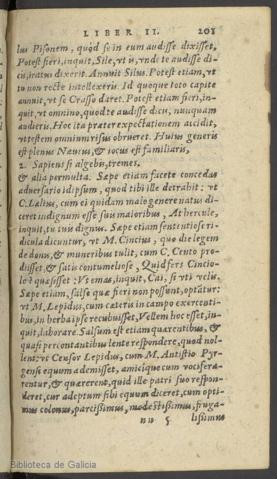 LIBER II. 201
lus Pisonem, quòd se in eum audisse dixisset,
Potest fieri, inquit, Sile, vt is, vnde te audisse di-
cis, iratus dixerit. Annuit Silus. Potest etiam, vt
tu non recte intellexeris. Id quoque toto capite
annuit, vt se Crasso daret. Potest etiam fieri, in-
quit, vt omnino, quod te audisse dicis, nunquam
audieris. Hoc ita præter expectationem accidit,
vt testem omnium risus obrueret. Huius generis
est plenus Næuius, & iocus est familiaris,
2. Sapiens si algebis, tremes,
& alia permulta. Sæpe etiam facete concedas
aduersario id ipsum, quod tibi ille detrahit: vt
C. Lælius, cum ei quidam malo genere natus di-
ceret indignum esse suis maioribus, At hercule,
inquit, tu tuis dignus. Sæpe etiam sententiose ri-
dicula dicuntur, vt M. Cincius, quo die legem
de donis, & muneribus tulit, cum C. Cento pro-
disset, & satis contumeliose, Quid fers Cincio-
le? quæsisset: Vt emas, inquit, Cai, si vti velis.
Sæpe etiam, salse quæ fieri non possunt, optātur:
vt M. Lepidus, cum cæteris in campo exercenti-
bus, in herba ipse recubuisset, Vellem hoc esset, in-
quit, laborare. Salsum est etiam quærentibus, &
quasi percontantibus lente respondere, quod nol-
lent: vt Censor Lepidus, cum M. Antistio Pyr-
gensi equum ademisset, amicique cum vociferа-
rentur, & quærerent, quid ille patri suo respon-
deret, cur ademptum sibi equum diceret, cum opti-
mus colonus, parcissimus, modestissimus, fruga-
nn 5 lissimus
Biblioteca de Galicia